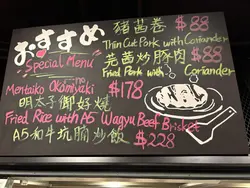 おすすめ
Special Menu
猪茜卷 $88
Thin Cut Pork with Coriander
芫茜炒豚肉 $88
Fried Pork with Coriander
Mentaiko Okonomiyaki $178
明太子御好燒
Fried Rice with A5 Wagyu Beef Brisket
A5和牛坑腩炒飯 $228